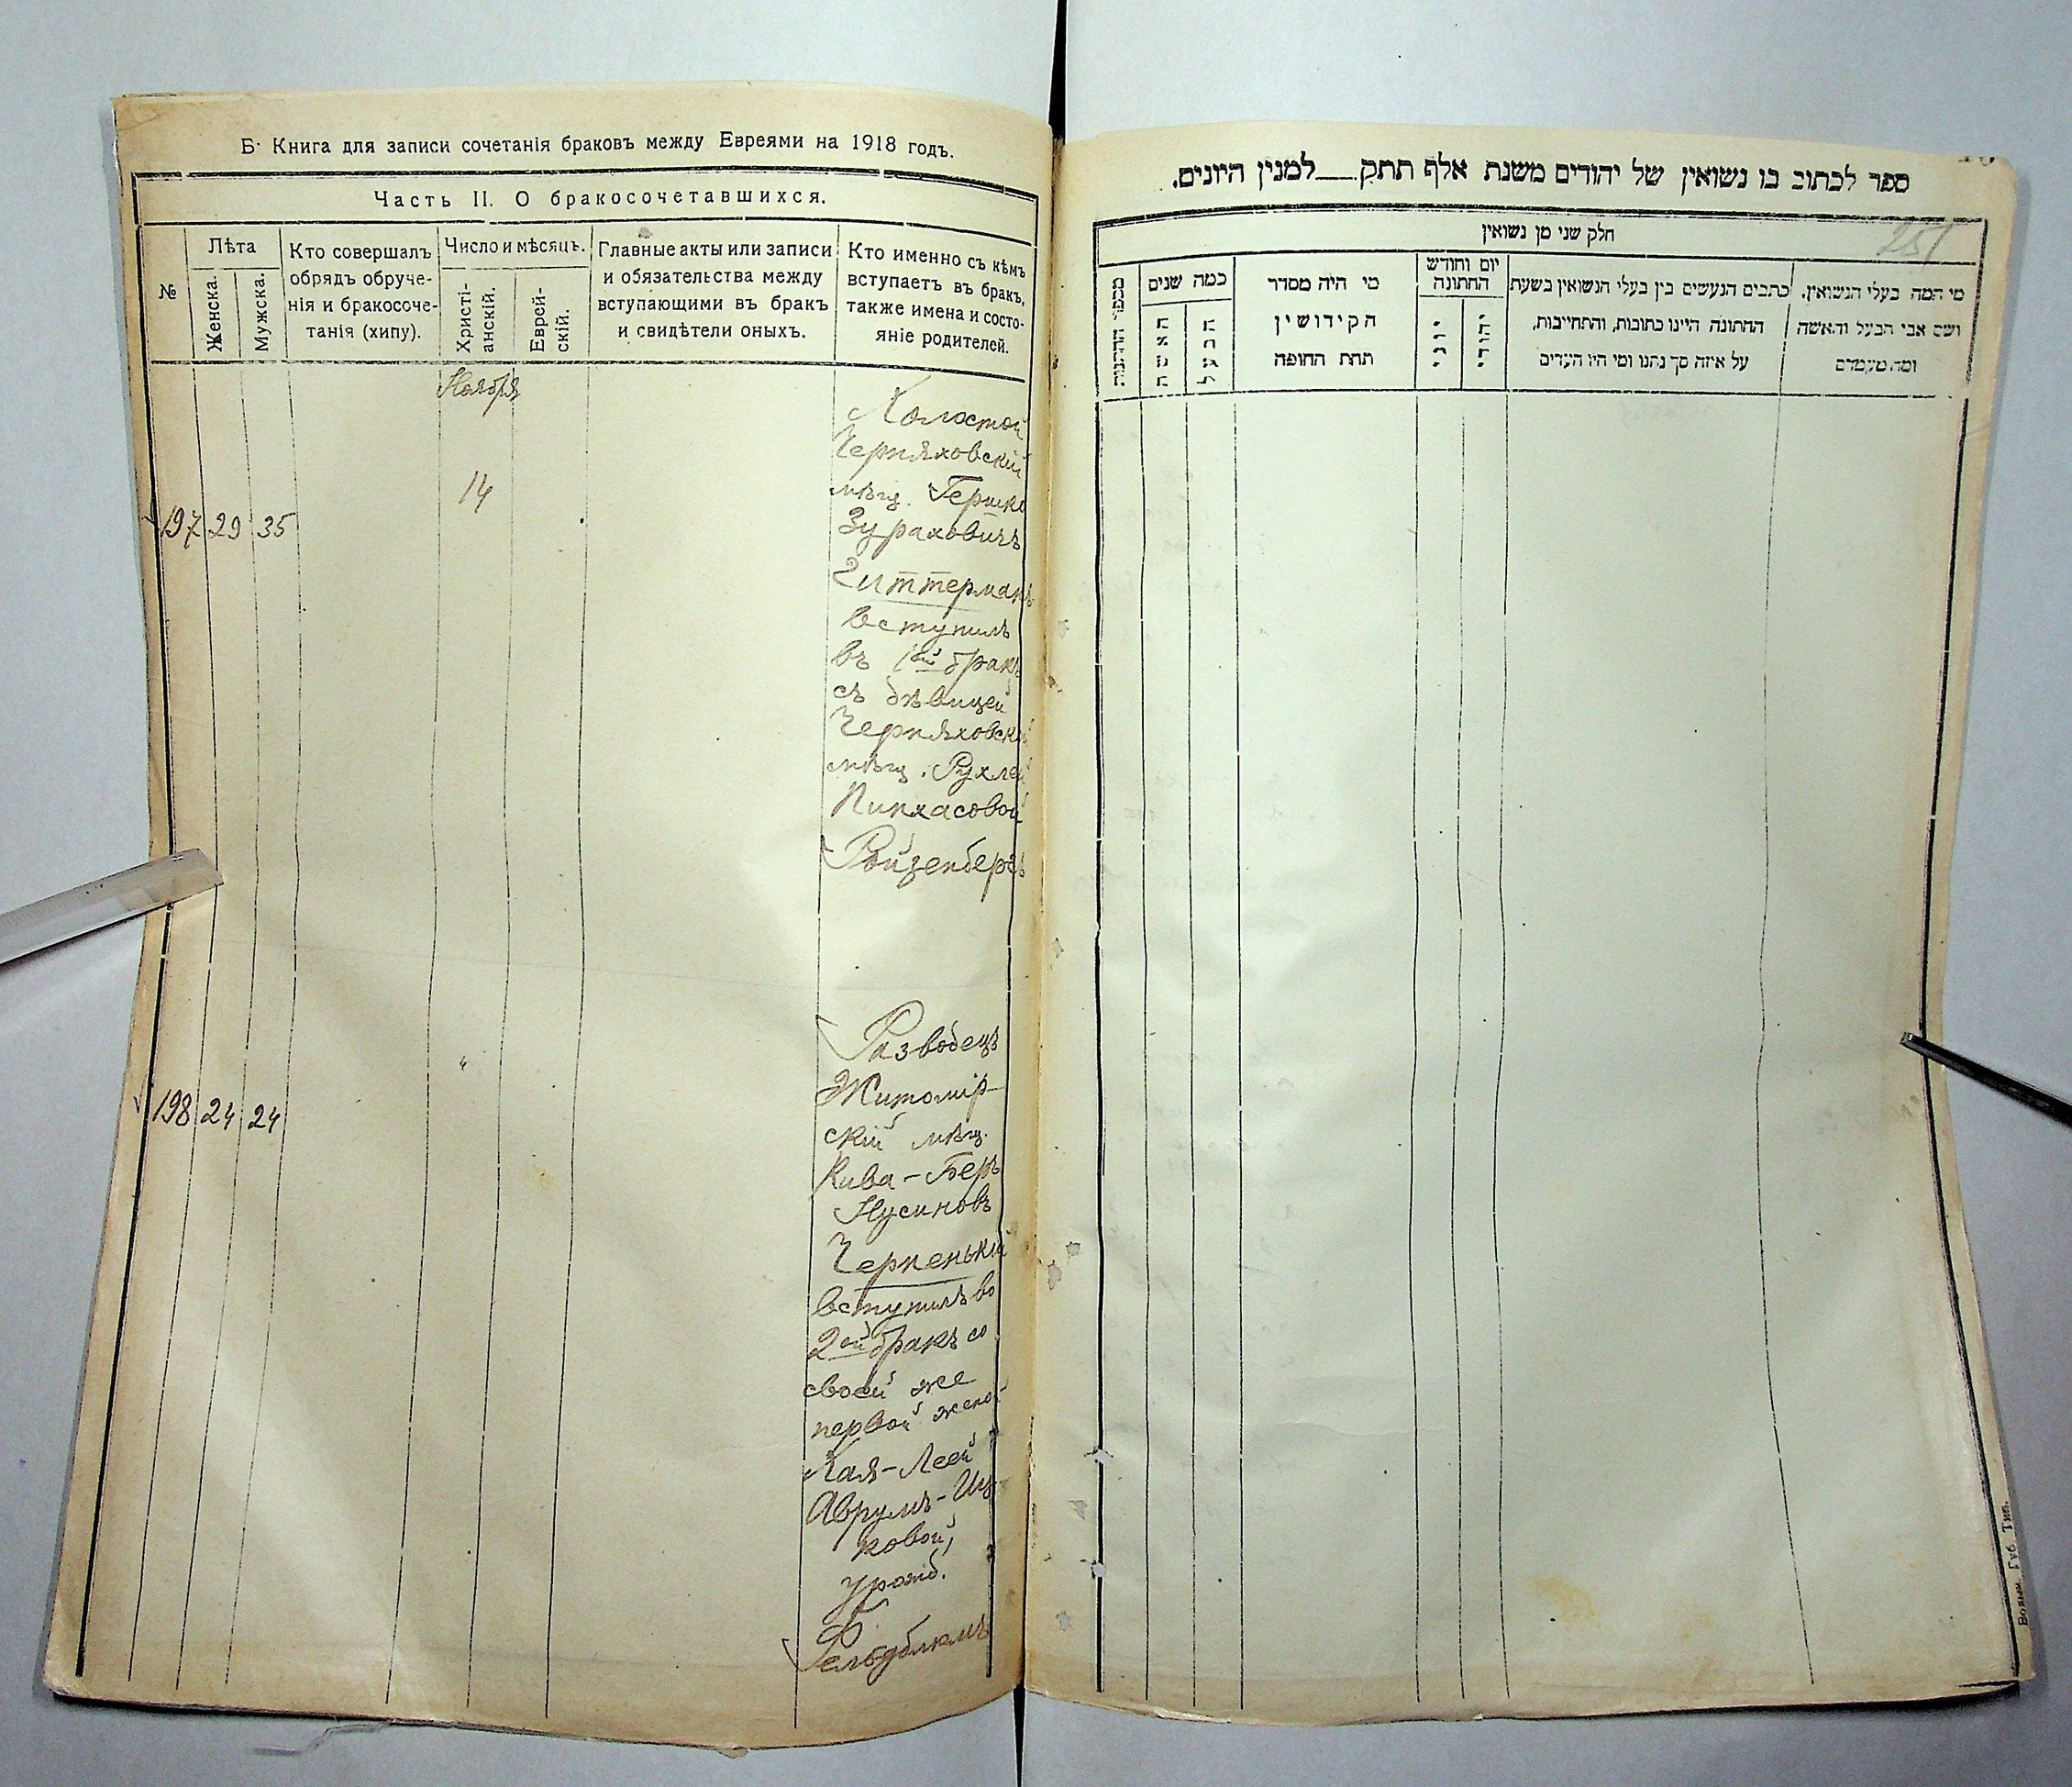 Б. Книга для записи сочетанія браковъ между Евреями на 1918 годъ.
Часть II. О бракосочетавшихся.
№
Лѣта
Женска.
Мужска.
Кто совершалъ
обрядъ обруче-
нія и бракосоче-
танія (хипу).
Число и мѣсяцъ.
Христі-
анскій.
Еврей-
скій.
Главные акты или записи
и обязательства между
вступающими въ бракъ
и свидѣтели оныхъ.
Кто именно съ кѣмъ
вступаетъ въ бракъ,
также имена и состо-
яніе родителей.
Ноября
197 29 35
14
Холостой
Черняховскій
мѣщ. Гершко
Зураховичъ
Гиттерманъ
вступилъ
въ 1ый бракъ
съ дѣвицей
Черняховской
мѣщ. Рухлей
Пинхасовой
Ройзенбергъ
198 24 24
"
Разводецъ
Житомір-
скій мѣщ.
Кива-Беръ
Нусиновъ
Черненькій
вступилъ во
2ой бракъ со
своей же
первой женой
Хая-Леей
Аврумъ-Иц-
ковой,
урожд.
Гельдблюмъ
ספר לכתוב בו נשואין של יהודים משנת אלף תתק למנין היונים.
251
חלק שני מן נשואין
מספר החתונות
כמה שנים
האשה
הבעל
מי היה מסדר
הקידושין
תחת החופה
יום וחודש
החתונה
יוני
יהודי
כתבים הנעשים בין בעלי הנשואין בשעת
החתונה היינו כתובות, והתחייבות,
על איזה סך נתנו ומי היו העדים
מי המה בעלי הנשואין,
ושם אבי הבעל והאשה
ומה מעמדם
Волын. Губ. Тип.